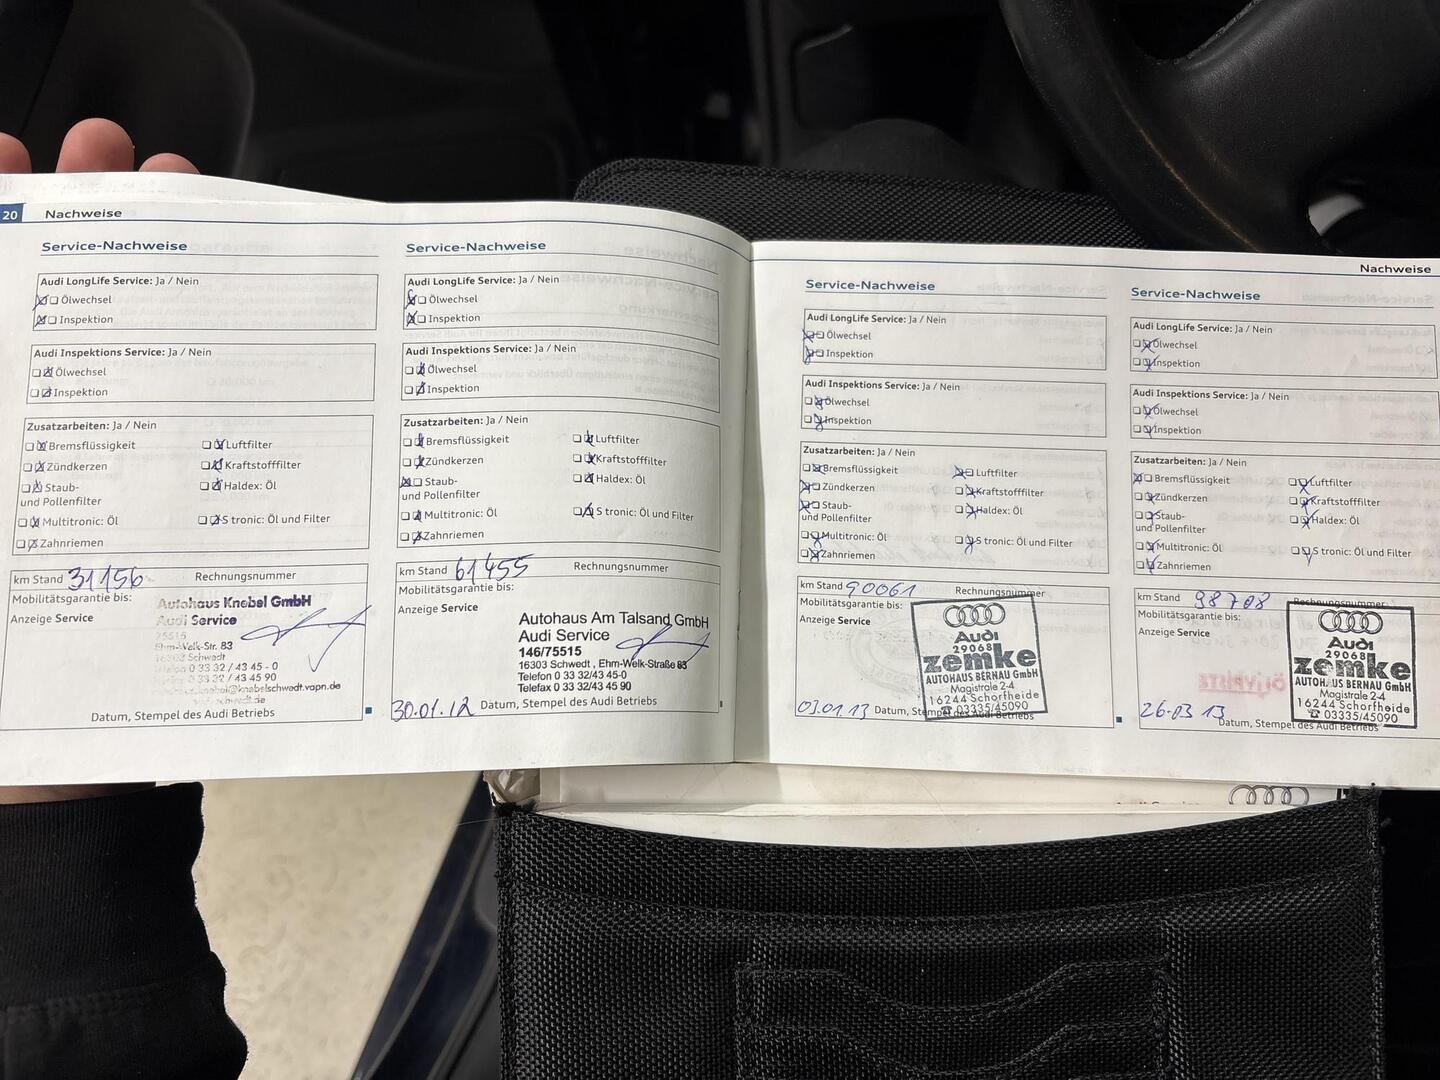 20 Nachweise
Service-Nachweise
Audi LongLife Service: Ja / Nein
Ölwechsel
Inspektion
Audi Inspektions Service: Ja / Nein
Ölwechsel
Inspektion
Zusatzarbeiten: Ja / Nein
Bremsflüssigkeit Luftfilter
Zündkerzen Kraftstofffilter
Staub- Haldex: Öl
und Pollenfilter
Multitronic: Öl S tronic: Öl und Filter
Zahnriemen
km Stand 31156 Rechnungsnummer
Mobilitätsgarantie bis:
Anzeige Service
Autohaus Knebel GmbH
Audi Service
75515
Ehm-Welk-Str. 83
16303 Schwedt
Telefon 0 33 32 / 43 45 - 0
0 33 32 / 43 45 90
@knabelschwedt.vapn.de
Datum, Stempel des Audi Betriebs
Service-Nachweise
Audi LongLife Service: Ja / Nein
Ölwechsel
Inspektion
Audi Inspektions Service: Ja / Nein
Ölwechsel
Inspektion
Zusatzarbeiten: Ja / Nein
Bremsflüssigkeit Luftfilter
Zündkerzen Kraftstofffilter
Staub- Haldex: Öl
und Pollenfilter
Multitronic: Öl S tronic: Öl und Filter
Zahnriemen
km Stand 61455 Rechnungsnummer
Mobilitätsgarantie bis:
Anzeige Service
Autohaus Am Talsand GmbH
Audi Service
146/75515
16303 Schwedt , Ehm-Welk-Straße 83
Telefon 0 33 32/43 45-0
Telefax 0 33 32/43 45 90
30.01.12 Datum, Stempel des Audi Betriebs
Nachweise
Service-Nachweise
Audi LongLife Service: Ja / Nein
Ölwechsel
Inspektion
Audi Inspektions Service: Ja / Nein
Ölwechsel
Inspektion
Zusatzarbeiten: Ja / Nein
Bremsflüssigkeit Luftfilter
Zündkerzen Kraftstofffilter
Staub- Haldex: Öl
und Pollenfilter
Multitronic: Öl S tronic: Öl und Filter
Zahnriemen
km Stand 90061 Rechnungsnummer
Mobilitätsgarantie bis:
Anzeige Service
Audi
29068
zemke
AUTOHAUS BERNAU GmbH
Magistrale 2-4
16244 Schorfheide
☎ 03335/45090
03.01.13 Datum, Stempel des Audi Betriebs
Service-Nachweise
Audi LongLife Service: Ja / Nein
Ölwechsel
Inspektion
Audi Inspektions Service: Ja / Nein
Ölwechsel
Inspektion
Zusatzarbeiten: Ja / Nein
Bremsflüssigkeit Luftfilter
Zündkerzen Kraftstofffilter
Staub- Haldex: Öl
und Pollenfilter
Multitronic: Öl S tronic: Öl und Filter
Zahnriemen
km Stand 98708 Rechnungsnummer
Mobilitätsgarantie bis:
Anzeige Service
Audi
29068
zemke
AUTOHAUS BERNAU GmbH
Magistrale 2-4
16244 Schorfheide
☎ 03335/45090
26.03.13 Datum, Stempel des Audi Betriebs